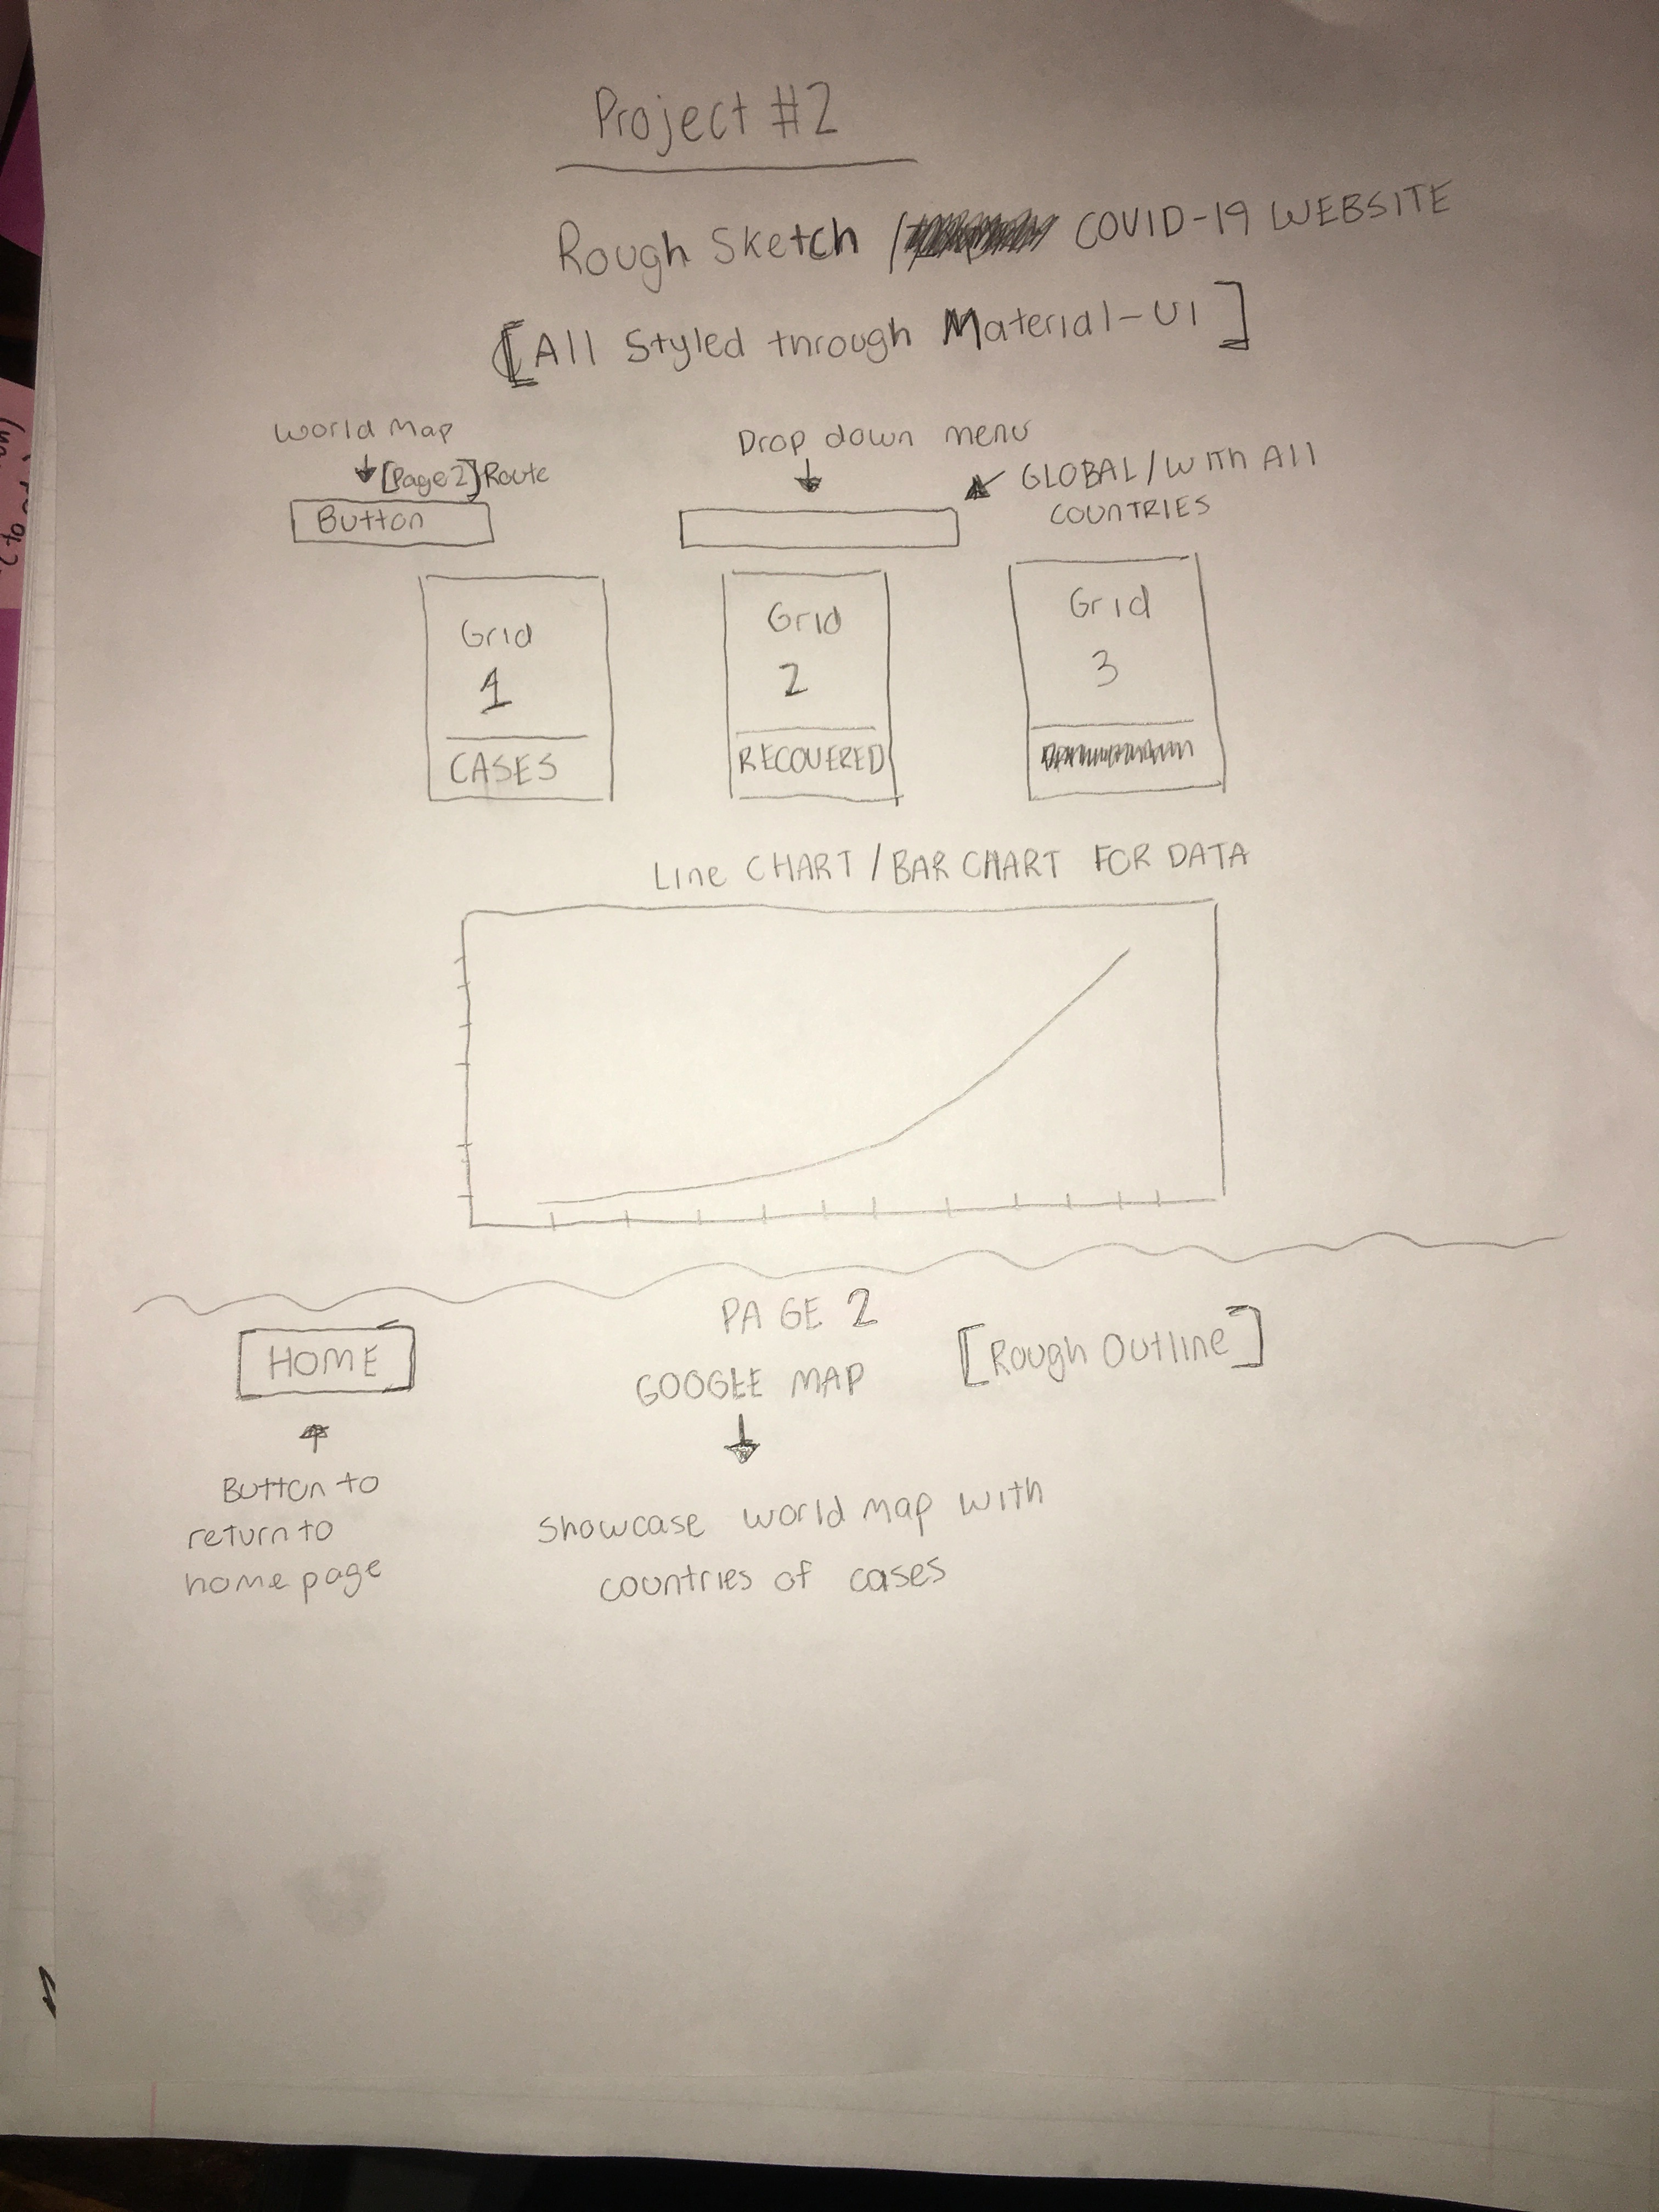 Project #2
Rough Sketch / COVID-19 WEBSITE
[All Styled through Material-UI]
World Map
[Page 2] Route
Button
Drop down menu
GLOBAL/WITH All
COUNTRIES
Grid
1
CASES
Grid
2
RECOVERED
Grid
3
Line CHART / BAR CHART FOR DATA
PAGE 2
[Rough Outline]
HOME
GOOGLE MAP
Button to
return to
home page
Showcase world map with
countries of cases